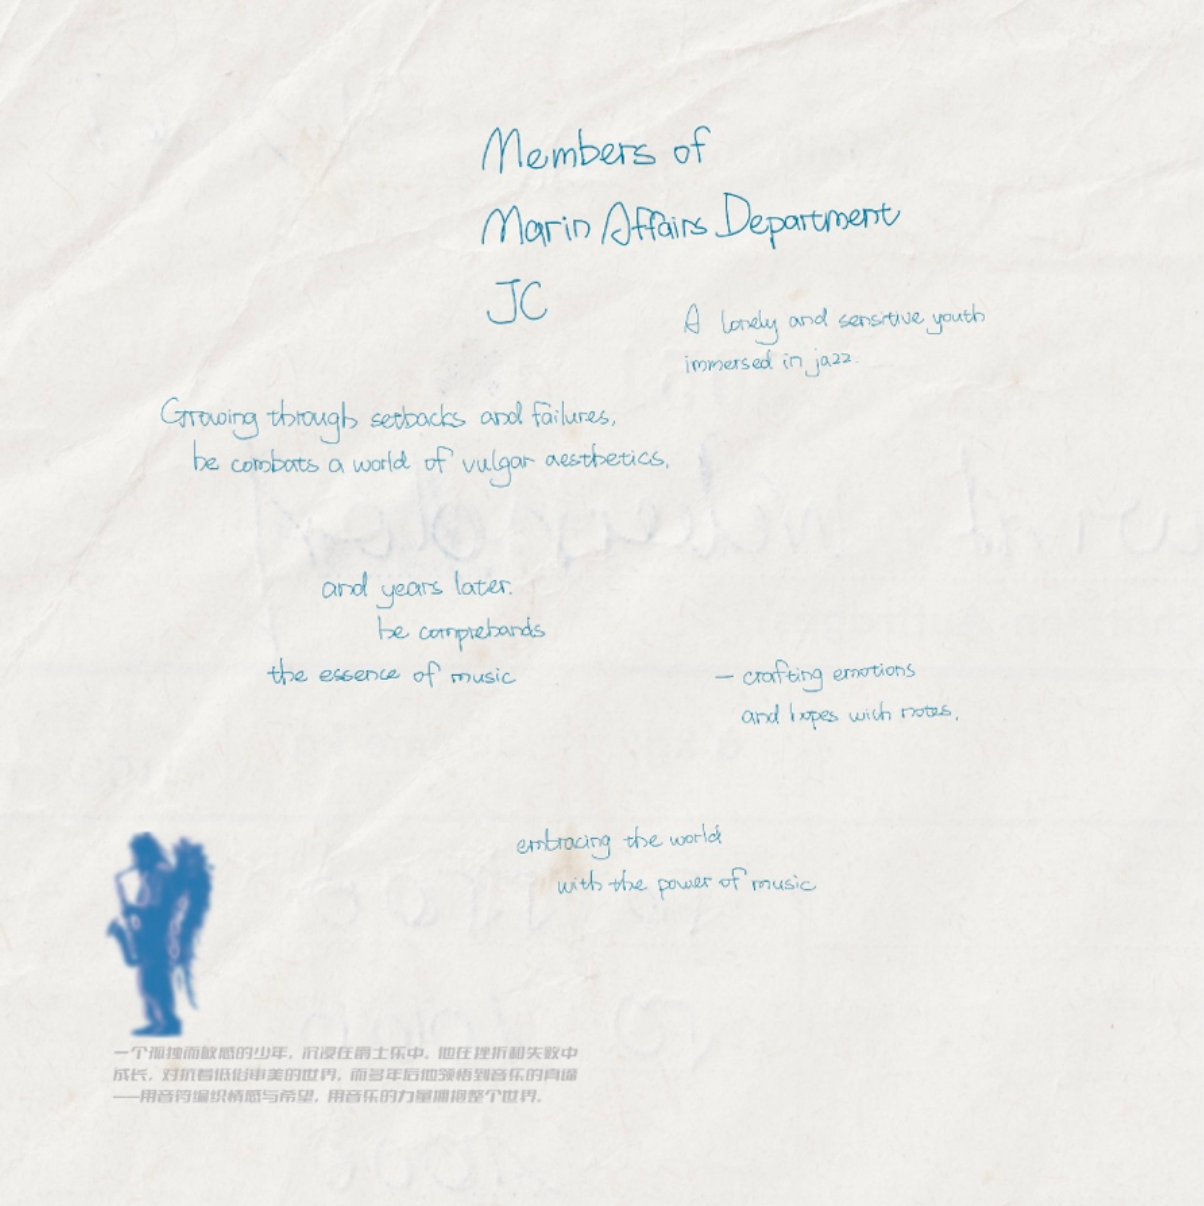 Members of
Marin Affairs Department
JC
A lonely and sensitive youth
immersed in jazz.
Growing through setbacks and failures,
he combats a world of vulgar aesthetics,
and years later.
he comprehands
the essence of music
— crafting emotions
and hopes with notes,
embracing the world
with the power of music
一个孤独而敏感的少年，沉浸在爵士乐中，他在挫折和失败中
成长，对抗着低俗审美的世界，而多年后他领悟到音乐的真谛
——用音符编织情感与希望，用音乐的力量拥抱整个世界。